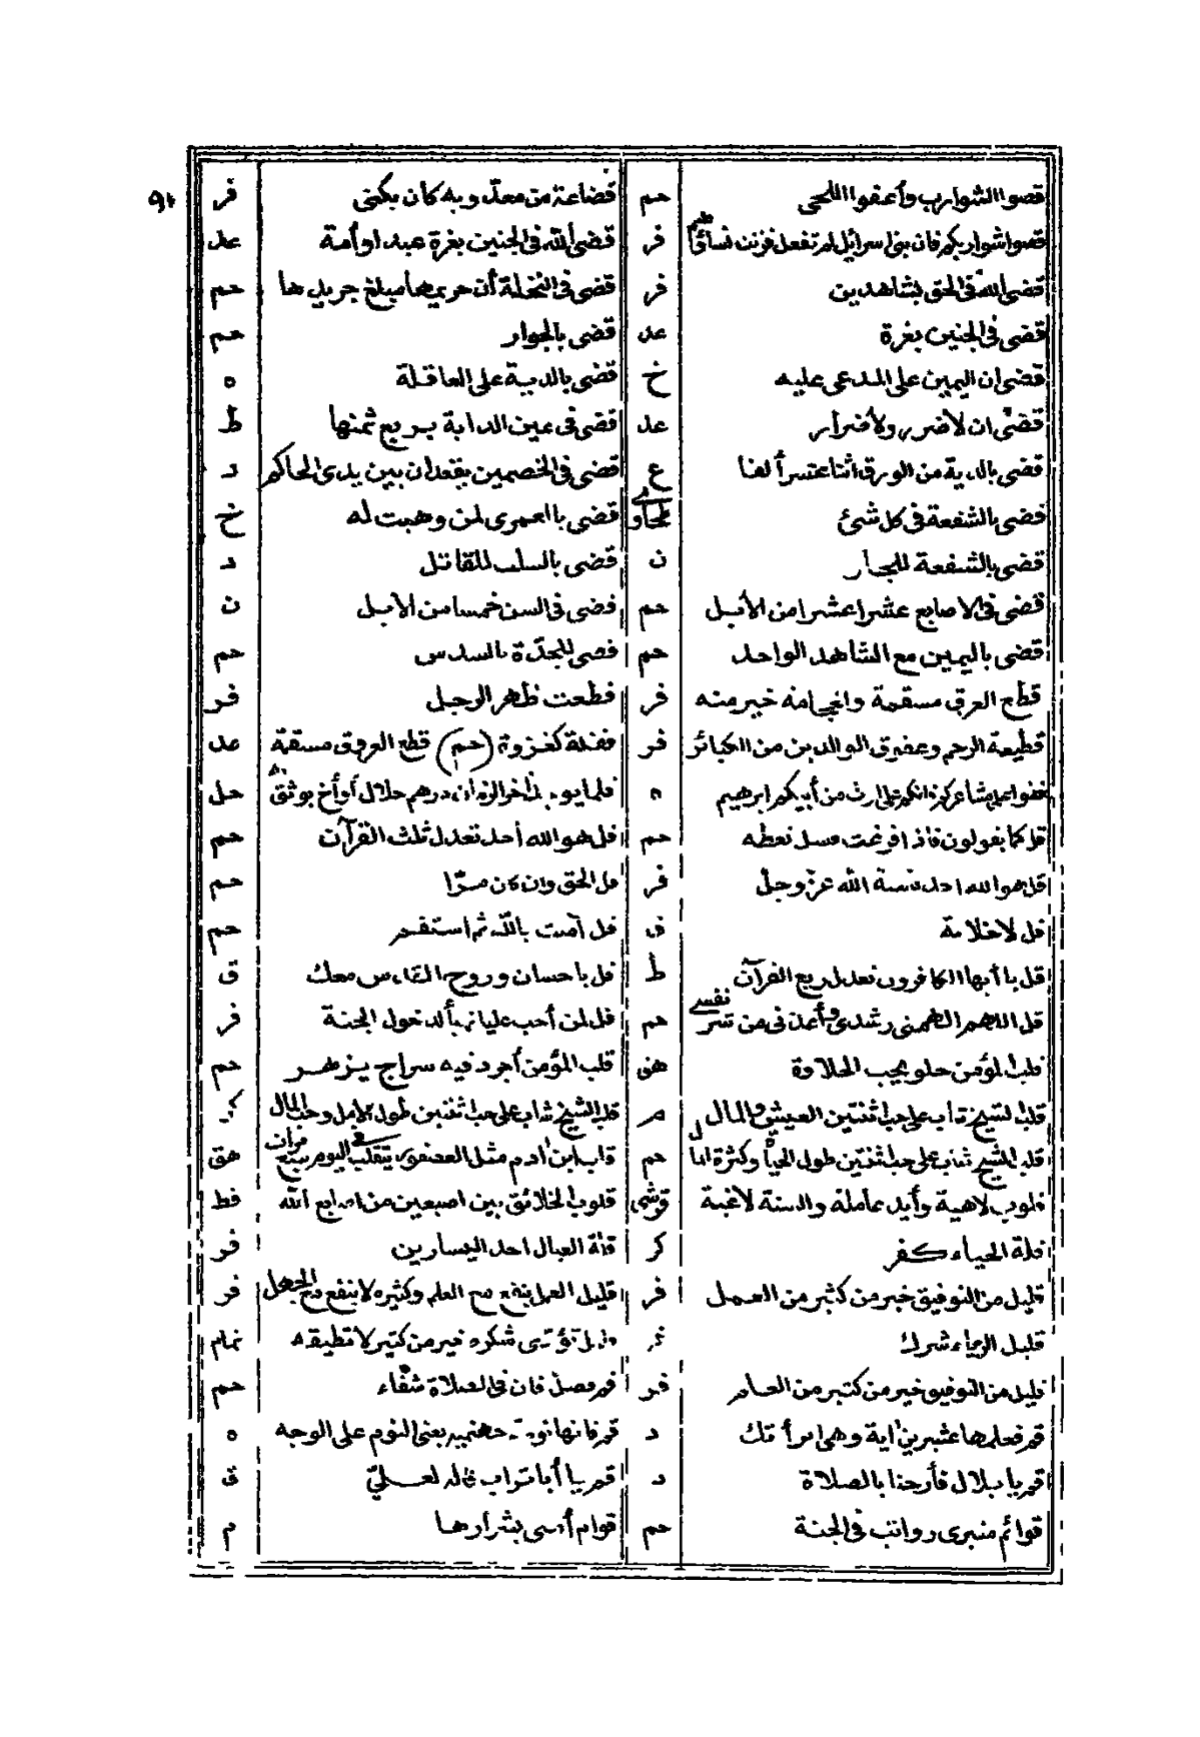 ٩٢
قصوا الشوارب وأعفوا اللحى حم قضاعة من معدّ وبه كان يكنى فر
قصوا شواربكم فان بنى اسرائيل لم تفعل فزنت نساؤهم فر قضى الله فى الجنين بغرة عبد او أمة عد
قضى الله فى الحق بشاهدين فر قضى فى النخلة أن حريمها مبلغ جريدها حم
قضى فى الجنين بغرة عد قضى بالجوار حم
قضى ان اليمين على المدعى عليه خ قضى بالدية على العاقلة ه
قضى ان لا ضرر ولا ضرار عد قضى فى عين الدابة بربع ثمنها ط
قضى بالدية من الورق اثنا عشر ألفا ع قضى فى الخصمين يقعدان بين يدى الحاكم د
قضى بالشفعة فى كل شئ طحاوى قضى بالعمرى لمن وهبت له خ
قضى بالشفعة للجار ن قضى بالسلب للقاتل د
قضى فى الاصابع عشرا عشرا من الأبل حم قضى فى السن خمسا من الأبل ن
قضى باليمين مع الشاهد الواحد حم قضى للجدّة بالسدس حم
قطع العرق مسقمة والحجامة خير منه فر قطعت ظهر الرجل فر
قطيعة الرحم وعقوق الوالدين من الكبائر فر قفلة كغزوة (حم) قطع العروق مسقمة عد
قفوا على مشاعركم فانكم على ارث من أبيكم ابرهيم ه قلما يوجد فى آخر الزمان درهم حلال أو أخ يوثق به حل
قل كما يقولون فاذا فرغت فسل تعطه حم قل هو الله أحد تعدل ثلث القرآن حم
قل هو الله احد نسبة الله عز وجل فر قل الحق وان كان مرّا حم
قل لا خلابة ق قل آمنت بالله ثم استقم حم
قل يا أيها الكافرون تعدل ربع القرآن ط قل يا حسان وروح القدس معك ق
قل اللهم الهمنى رشدى وأعذنى من شر نفسى حم قل لمن أحب عليا تهيأ لدخول الجنة فر
قلب المؤمن حلو يحب الحلاوة هق قلب المؤمن أجرد فيه سراج يزهر حم
قلب الشيخ شاب على حب اثنتين العيش والمال م قلب الشيخ شاب على حب اثنتين طول الأمل وحب المال
قلب الشيخ شاب على حب اثنتين طول الحياة وكثرة المال حم قلب ابن آدم مثل العصفور يتقلب فى اليوم سبع مرات هق
قلوب لاهية وأيد عاملة والسنة لاغية قلوب الخلائق بين اصبعين من اصابع الله قط
قلة الحياء كفر كر قلة العيال احد اليسارين فر
قليل من التوفيق خير من كثير من العمل فر قليل العمل ينفع مع العلم وكثيره لا ينفع مع الجهل فر
قليل الرياء شرك قليل تؤدى شكره خير من كثير لا تطيقه تمام
قليل من التوفيق خير من كثير من العلم فر قم فصل فان فى الصلاة شفاء حم
قم فعلمها عشرين آية وهى امرأتك د قم فانها نومة جهنمية يعنى النوم على الوجه ه
قم يا بلال فأرحنا بالصلاة د قم يا أبا تراب قاله لعلىّ ق
قوائم منبرى رواتب فى الجنة حم قوام أمتى بشرارها م